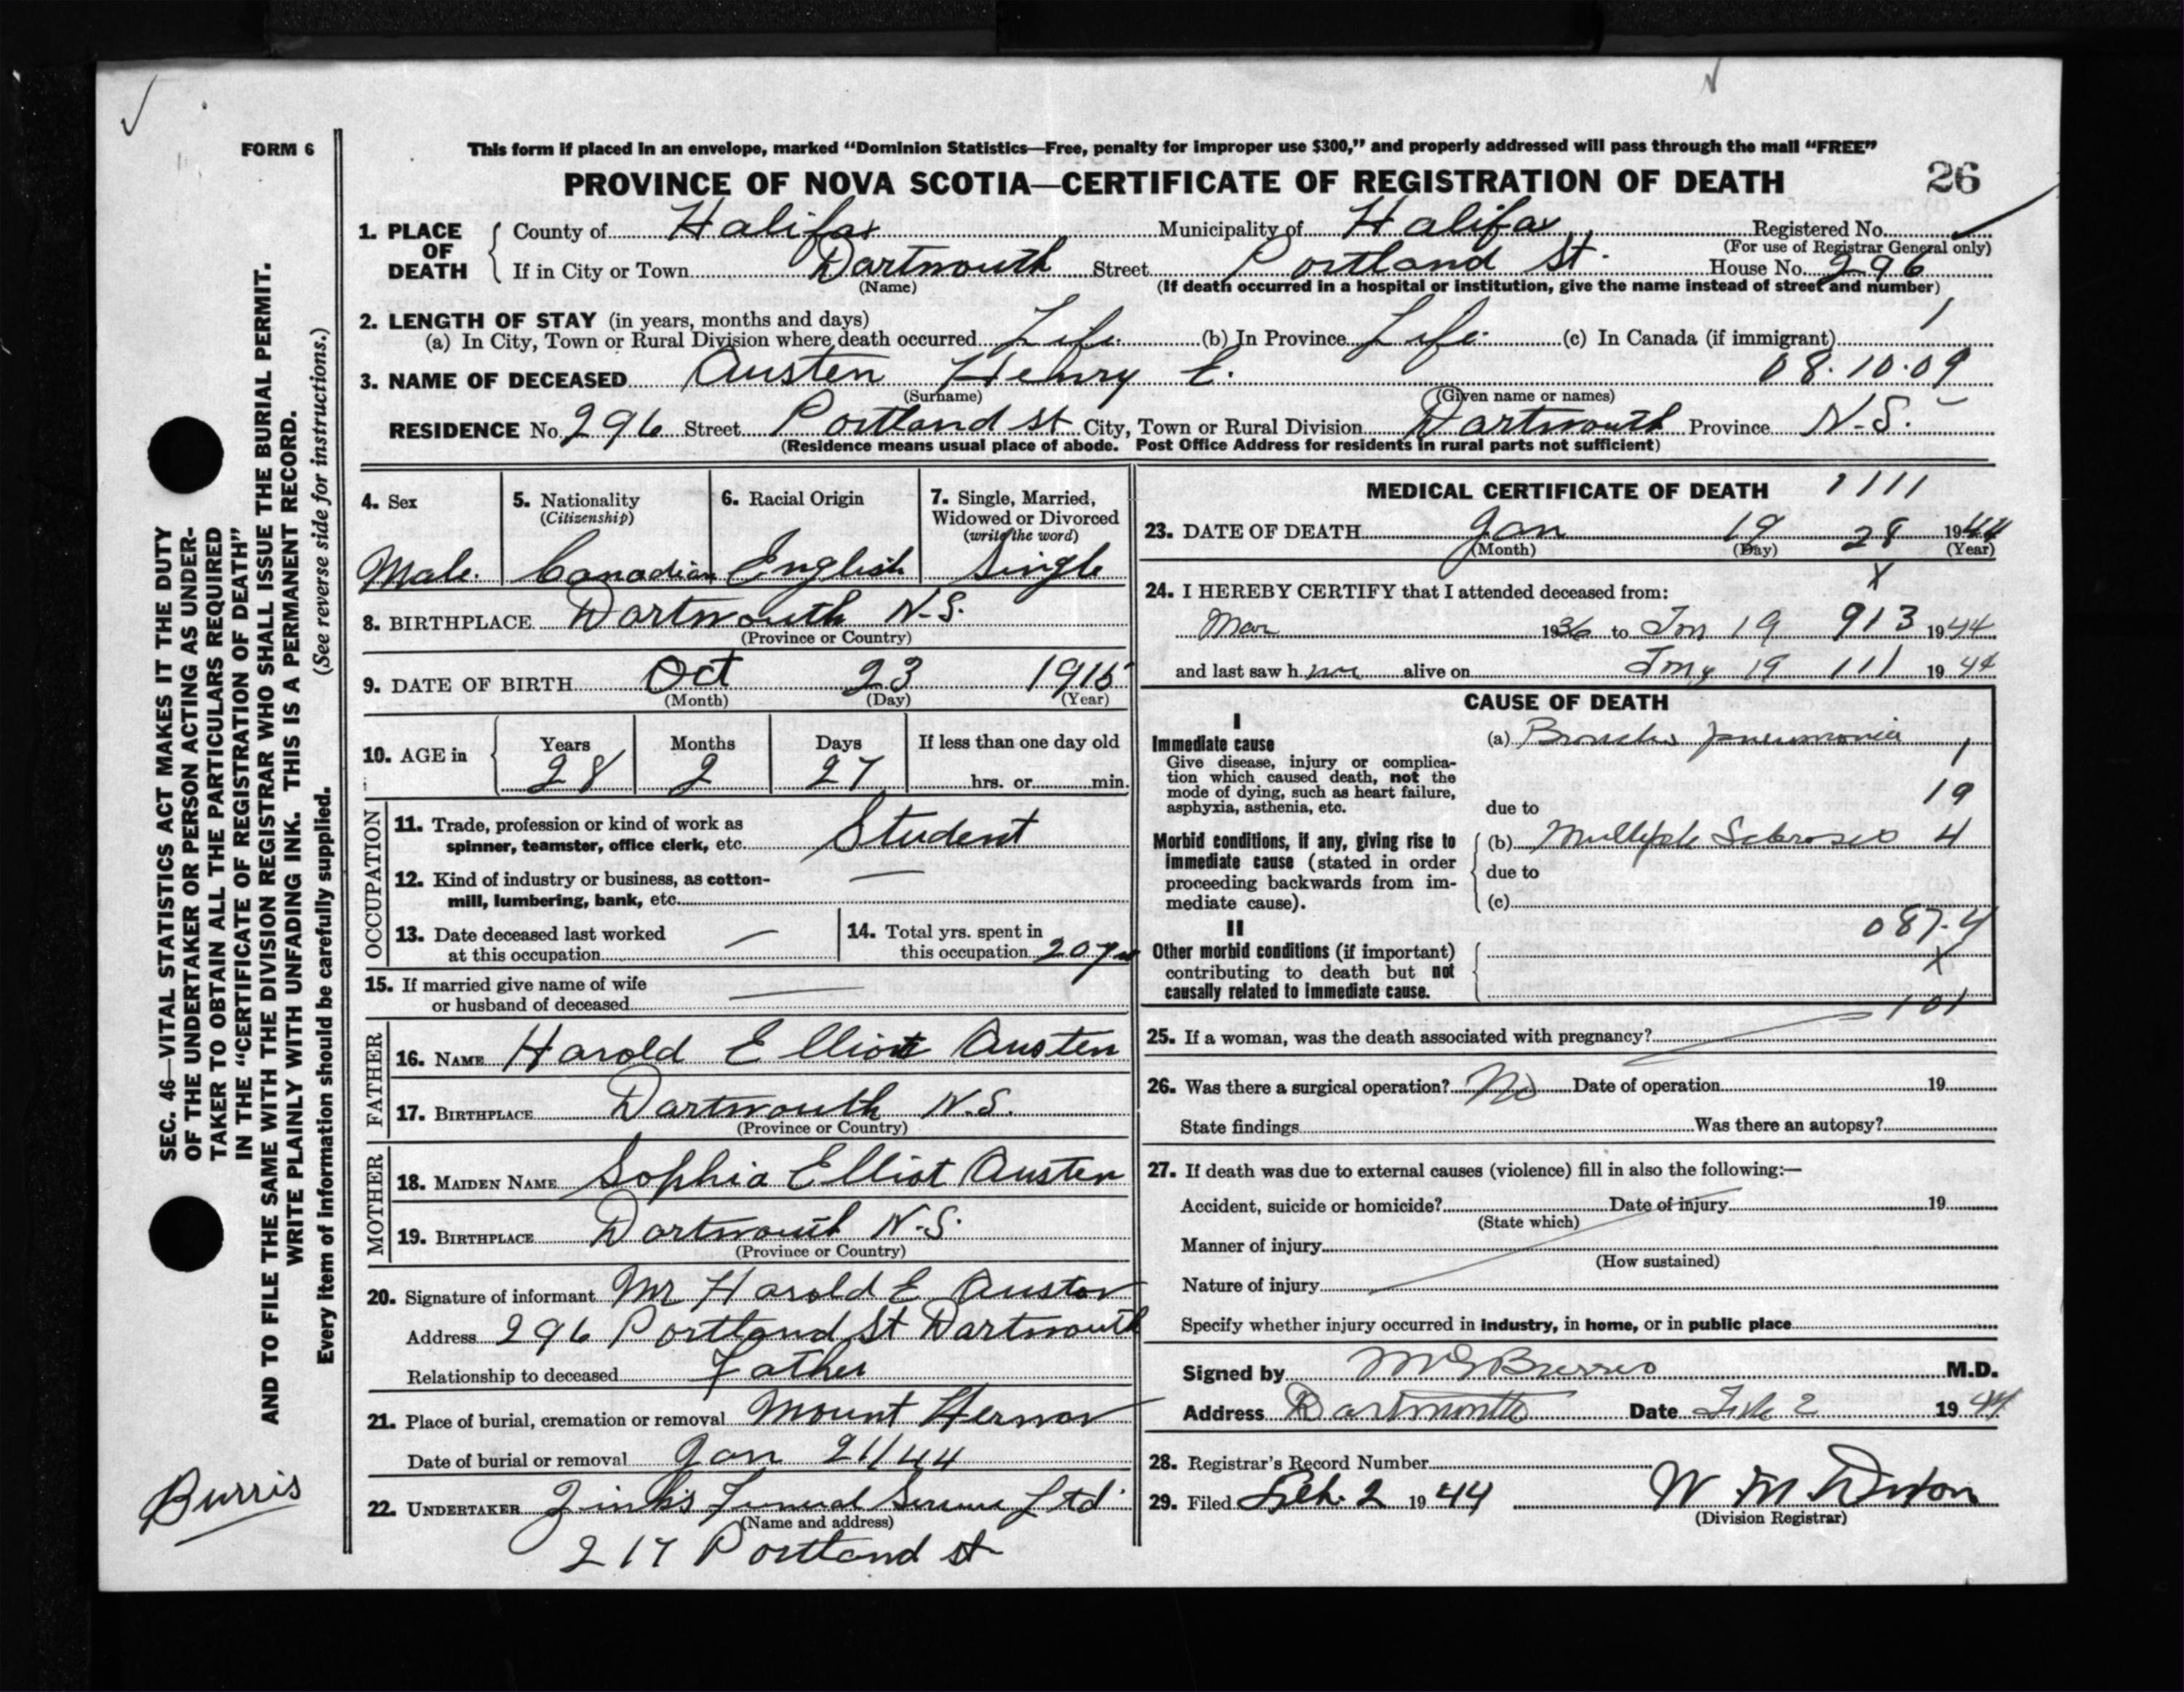 FORM 6
This form if placed in an envelope, marked “Dominion Statistics—Free, penalty for improper use $300,” and properly addressed will pass through the mail “FREE”
PROVINCE OF NOVA SCOTIA—CERTIFICATE OF REGISTRATION OF DEATH 26
1. PLACE OF DEATH
County of Halifax Municipality of Halifax Registered No.
(For use of Registrar General only)
If in City or Town Dartmouth Street Portland St. House No. 296
(Name) (If death occurred in a hospital or institution, give the name instead of street and number)
2. LENGTH OF STAY (in years, months and days) 1
(a) In City, Town or Rural Division where death occurred Life (b) In Province Life (c) In Canada (if immigrant)
3. NAME OF DECEASED Austen Henry E. 08.10.09
(Surname) (Given name or names)
RESIDENCE No. 296 Street Portland St City, Town or Rural Division Dartmouth Province N.S.
(Residence means usual place of abode. Post Office Address for residents in rural parts not sufficient)
4. Sex
Male.
5. Nationality
(Citizenship)
Canadian
6. Racial Origin
English
7. Single, Married,
Widowed or Divorced
(write the word)
Single
8. BIRTHPLACE Dartmouth N.S.
(Province or Country)
9. DATE OF BIRTH Oct 23 1915
(Month) (Day) (Year)
10. AGE in
Years Months Days If less than one day old
28 2 27 hrs. or min.
OCCUPATION
11. Trade, profession or kind of work as
spinner, teamster, office clerk, etc. Student
12. Kind of industry or business, as cotton-
mill, lumbering, bank, etc. —
13. Date deceased last worked
at this occupation —
14. Total yrs. spent in
this occupation 20 yrs
15. If married give name of wife
or husband of deceased —
FATHER
16. NAME Harold Elliott Austen
17. BIRTHPLACE Dartmouth N.S.
(Province or Country)
MOTHER
18. MAIDEN NAME Sophia Elliot Austen
19. BIRTHPLACE Dartmouth N.S.
(Province or Country)
20. Signature of informant Mr Harold E Austen
Address 296 Portland St Dartmouth
Relationship to deceased Father
21. Place of burial, cremation or removal Mount Hermon
Date of burial or removal Jan 21/44
22. UNDERTAKER Zink's Funeral Service Ltd.
(Name and address)
217 Portland St
MEDICAL CERTIFICATE OF DEATH 1111
23. DATE OF DEATH Jan 19 28 1944
(Month) (Day) (Year)
X
24. I HEREBY CERTIFY that I attended deceased from:
Mar 1936 to Jan 19 913 1944
and last saw h im alive on Jany 19 111 1944
CAUSE OF DEATH
I
Immediate cause
Give disease, injury or complica-
tion which caused death, not the
mode of dying, such as heart failure,
asphyxia, asthenia, etc.
(a) Broncho pneumonia 1
19
due to
Morbid conditions, if any, giving rise to
immediate cause (stated in order
proceeding backwards from im-
mediate cause).
(b) Multiple Sclerosis 4
due to
(c)
087.4
II
Other morbid conditions (if important)
contributing to death but not
causally related to immediate cause.
X
101
25. If a woman, was the death associated with pregnancy?
26. Was there a surgical operation? No Date of operation 19
State findings Was there an autopsy?
27. If death was due to external causes (violence) fill in also the following:—
Accident, suicide or homicide? Date of injury 19
(State which)
Manner of injury
(How sustained)
Nature of injury
Specify whether injury occurred in industry, in home, or in public place
Signed by M G Burris M.D.
Address Dartmouth Date Feb 2 1944
28. Registrar's Record Number
29. Filed Feb. 2 1944 W M Dixon
(Division Registrar)
SEC. 46—VITAL STATISTICS ACT MAKES IT THE DUTY
OF THE UNDERTAKER OR PERSON ACTING AS UNDER-
TAKER TO OBTAIN ALL THE PARTICULARS REQUIRED
IN THE “CERTIFICATE OF REGISTRATION OF DEATH”
AND TO FILE THE SAME WITH THE DIVISION REGISTRAR WHO SHALL ISSUE THE BURIAL PERMIT.
WRITE PLAINLY WITH UNFADING INK. THIS IS A PERMANENT RECORD.
Every item of information should be carefully supplied. (See reverse side for instructions.)
Burris